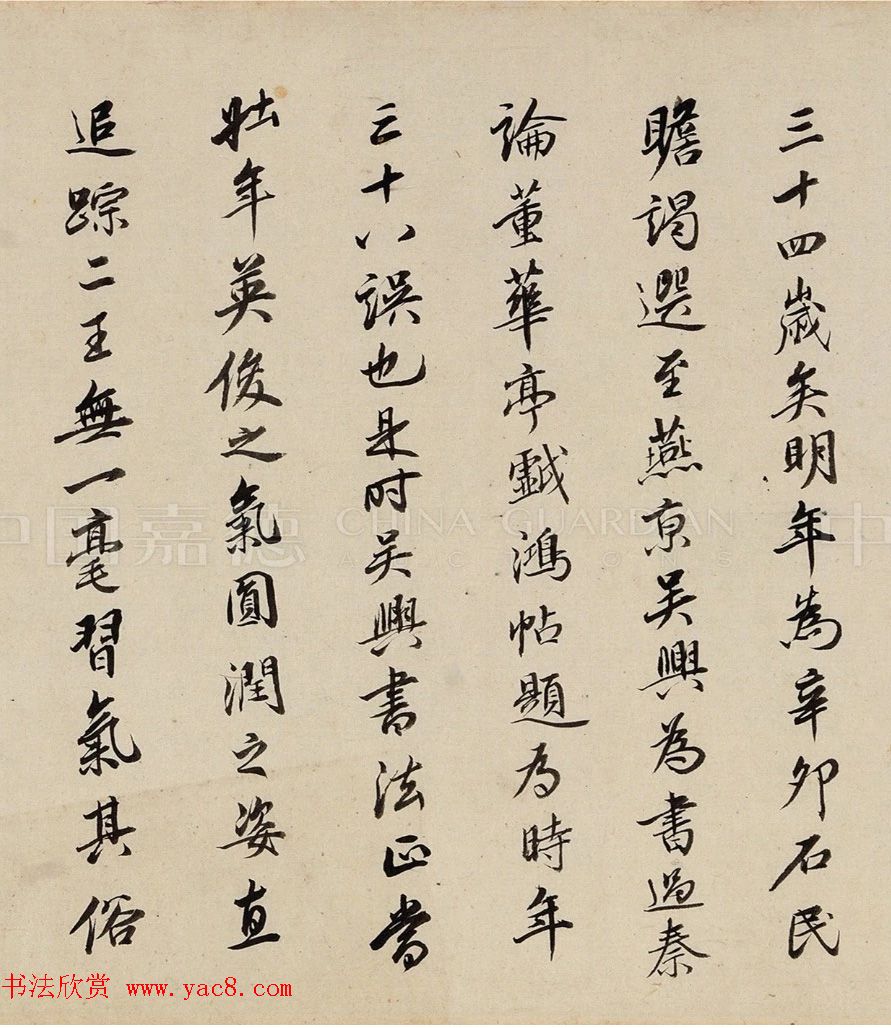 三十四歲矣明年為辛卯石民
瞻謁選至燕京吳興為書過秦
論董華亭戲鴻帖題為時年
三十八誤也是时吳興書法正當
壯年英俊之氣圓潤之姿直
追踪二王無一毫習氣其俗
中国嘉德 CHINA GUARDIAN
书法欣赏 www.yac8.com